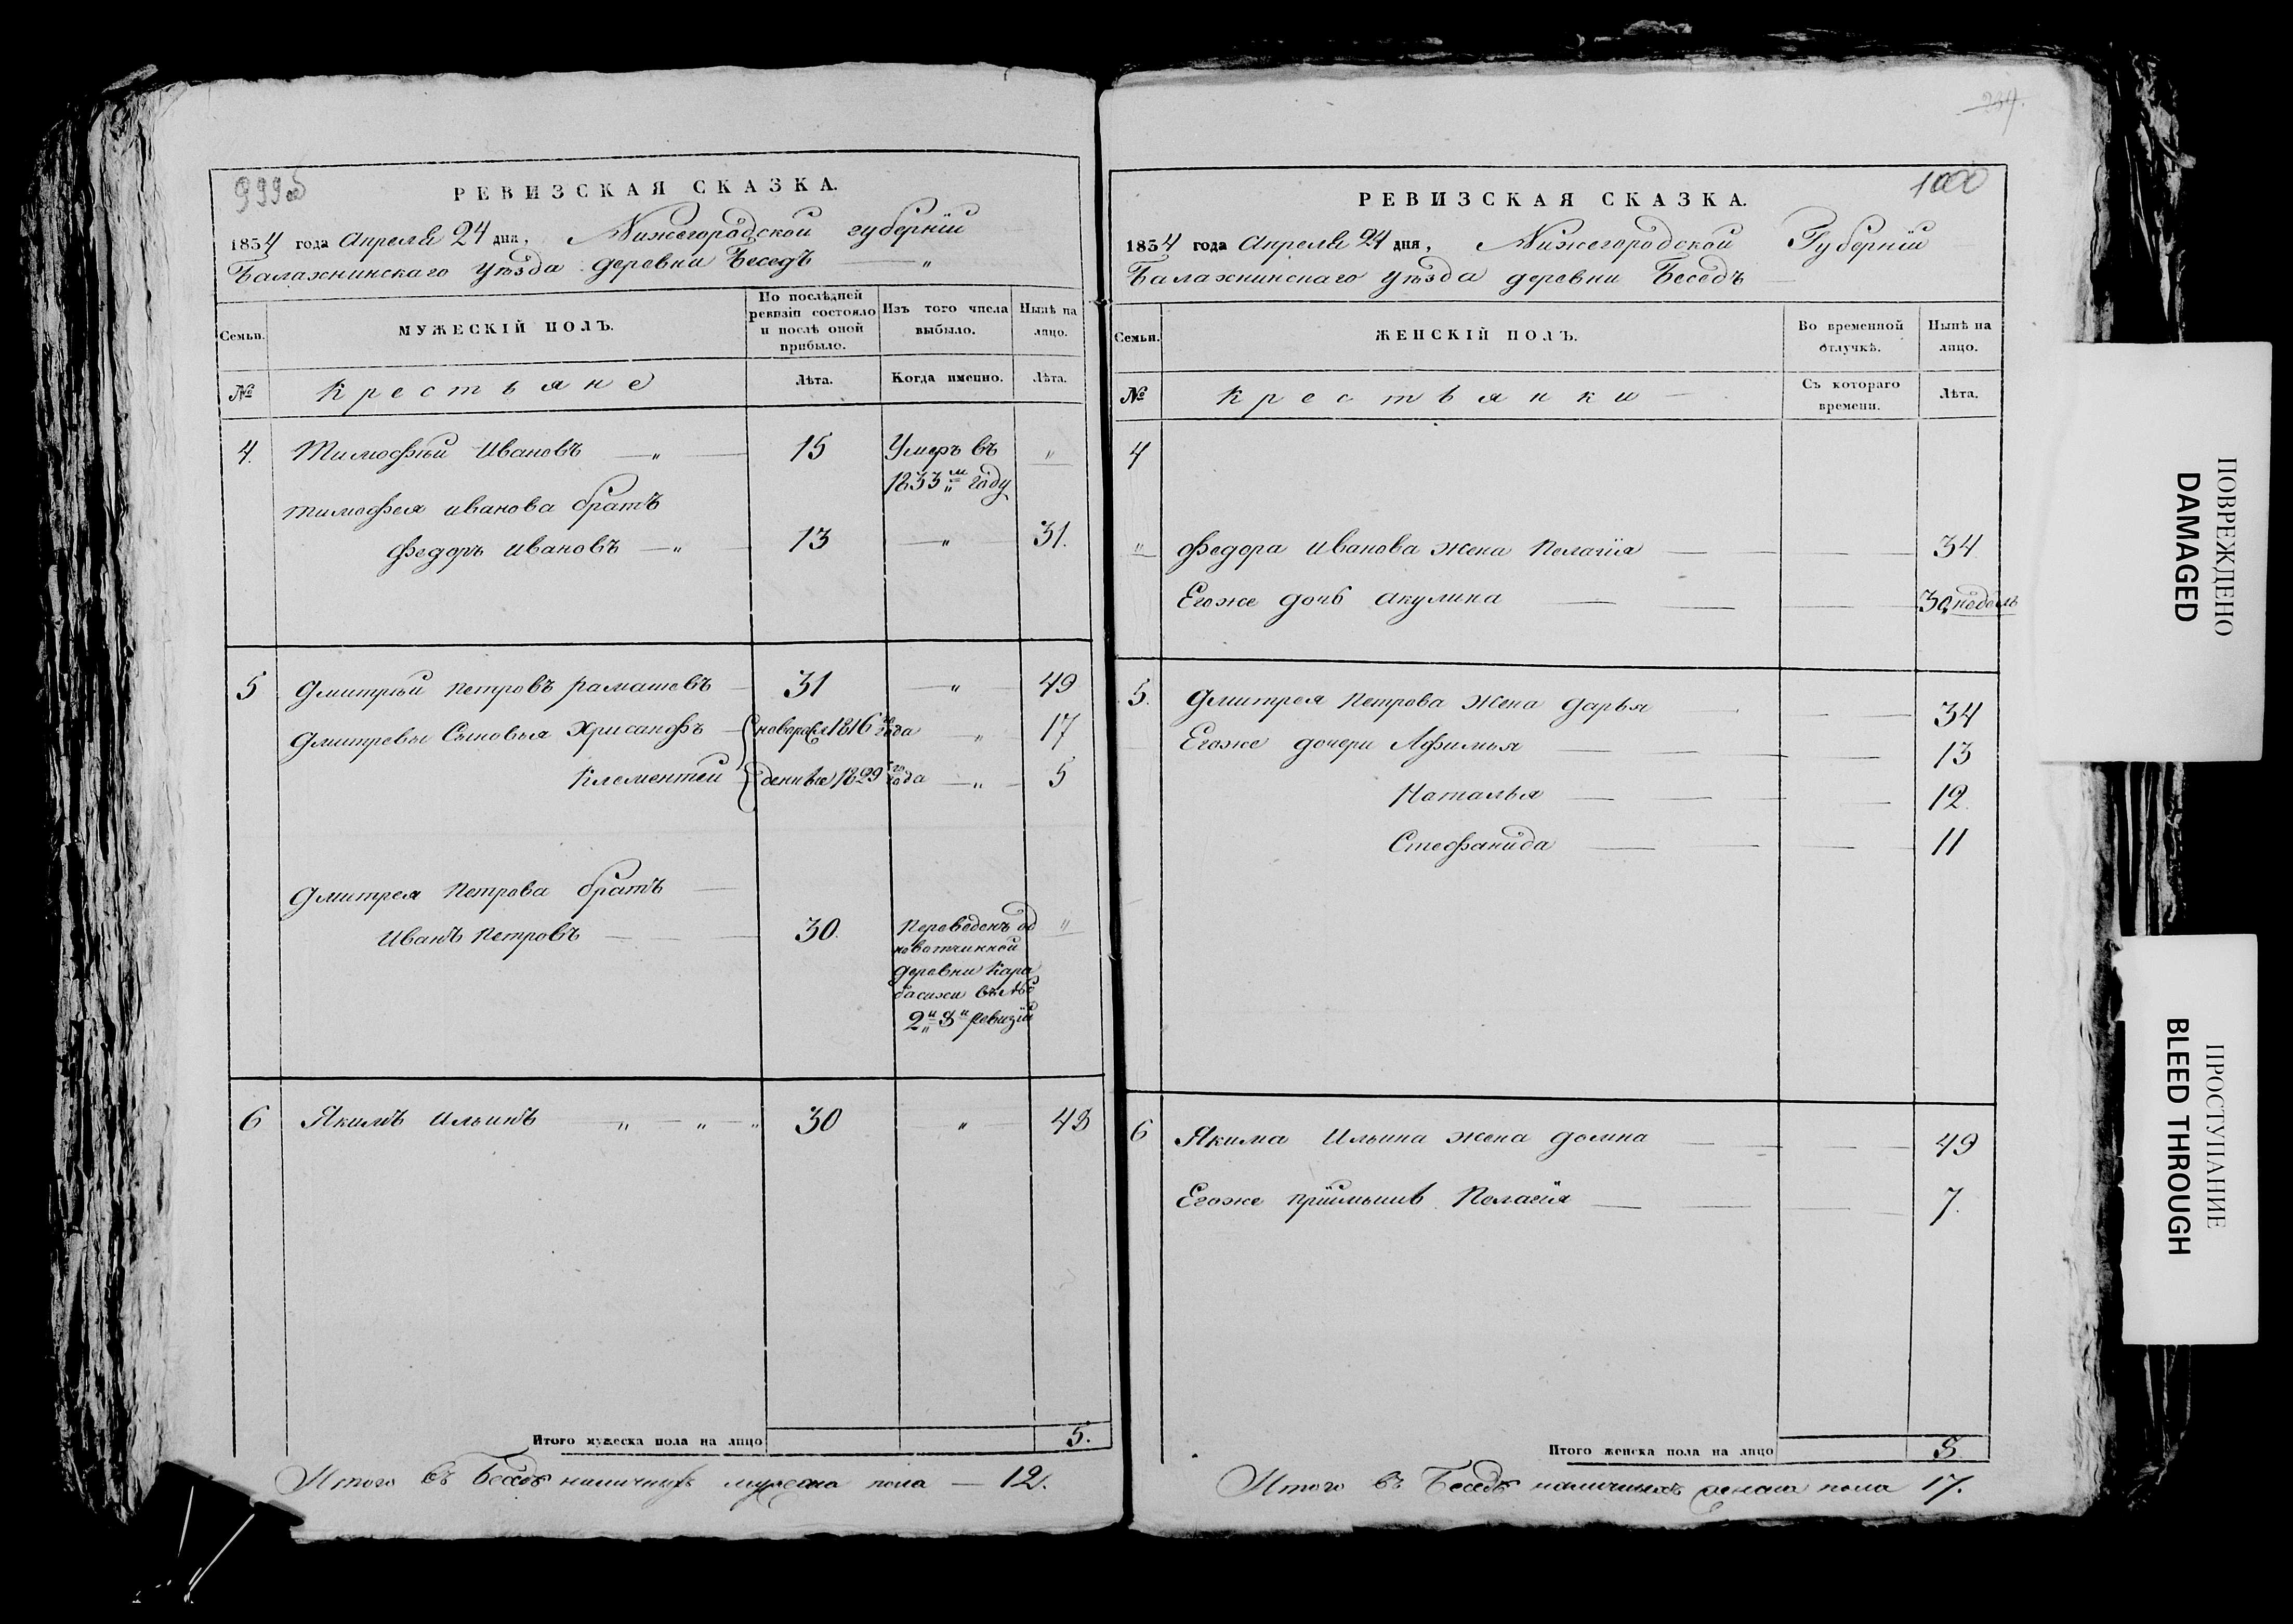 999об
РЕВИЗСКАЯ СКАЗКА.
1834 года Апреля 24 дня, Нижегородской губернїи
Балахнинскаго уѣзда деревни Беседъ — „
Семьи.
МУЖЕСКІЙ ПОЛЪ.
По послѣдней ревизіи состояло и послѣ оной прибыло.
Изъ того числа выбыло.
Нынѣ на лицо.
№
Крестьяне
Лѣта.
Когда именно.
Лѣта.
4. Тимофѣй Ивановъ — „ — 15 Умеръ въ „
1833м году
тимофея иванова братъ
Федоръ Ивановъ — „ — 13 — „ 31.
5 Дмитрѣй Петровъ рамашевъ 31 — „ 49
Дмитревы Сыновья Хрисанфъ новорож 1816го года — „ 17
Клементей денные 1829го года — „ 5
Дмитрея Петрова братъ —
Иванъ Петровъ — 30. Переведенъ од „
новотчинной
деревни Кара
басихи
2й 8й ревизїи
6 Якимъ Ильинъ — „ — „ — „ 30 „ 48
Итого мужеска пола на лицо 5.
Итого въ Беседъ наличныхъ мужеска пола — 12.
234.
1000
РЕВИЗСКАЯ СКАЗКА.
1834 года Апреля 24 дня, Нижегородской Губернїи
Балахнинскаго уѣзда деревни Беседъ —
Семьи.
ЖЕНСКІЙ ПОЛЪ.
Во временной отлучкѣ.
Нынѣ на лицо.
№
Крестьянки
Съ котораго времени.
Лѣта.
4
„ Федора Иванова жена Пелагїя — 34
Егоже дочь Акулина — 30 недель
5. Дмитрея Петрова жена Дарья — 34
Егоже дочери Афимья — 13
Наталья — 12.
Стефанида — 11
6 Якима Ильина жена Домна — 49
Егоже прїимышь Пелагїя — 7.
Итого женска пола на лицо 8
Итого въ Беседъ наличныхъ женска пола 17.
ПОВРЕЖДЕНО
DAMAGED
ПРОСТУПАНИЕ
BLEED THROUGH